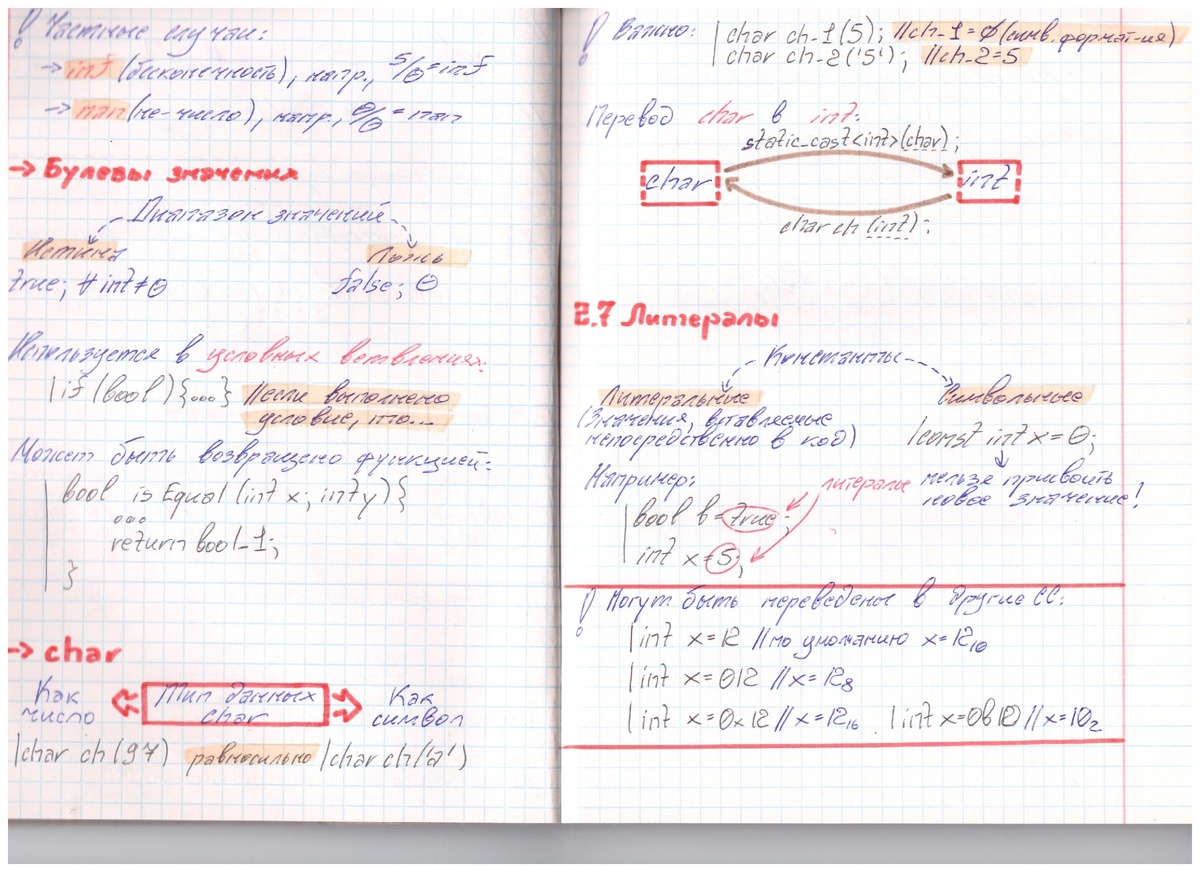 ! Частные случаи:
→ inf (бесконечность), напр., 5/0=inf
→ nan (не-число), напр., 0/0=nan
→ Булевы значения
Диапазон значений
Истина
Ложь
true; ∀ int≠0
false; 0
Используется в условных ветвлениях:
if (bool) {...} //если выполнено
условие, то...
Может быть возвращено функцией:
bool isEqual (int x; int y) {
...
return bool_1;
}
→ char
Как
число
Тип данных
char
Как
символ
char ch(97) равносильно char ch('a')
! Важно: char ch_1(5); //ch_1=∅(симв. формат-ия)
char ch_2('5'); //ch_2=5
Перевод char в int:
static_cast<int>(char);
char
int
char ch (int);
2.7 Литералы
Константы
Литеральные
Символьные
(Значения, вставляемые
непосредственно в код)
const int x=0;
нельзя присвоить
новое значение!
Например:
литералы
bool b=true;
int x=5;
! Могут быть переведены в другие СС:
int x=12 //по умолчанию x=12₁₀
int x=012 //x=12₈
int x=0x12 //x=12₁₆
int x=0b10 //x=10₂